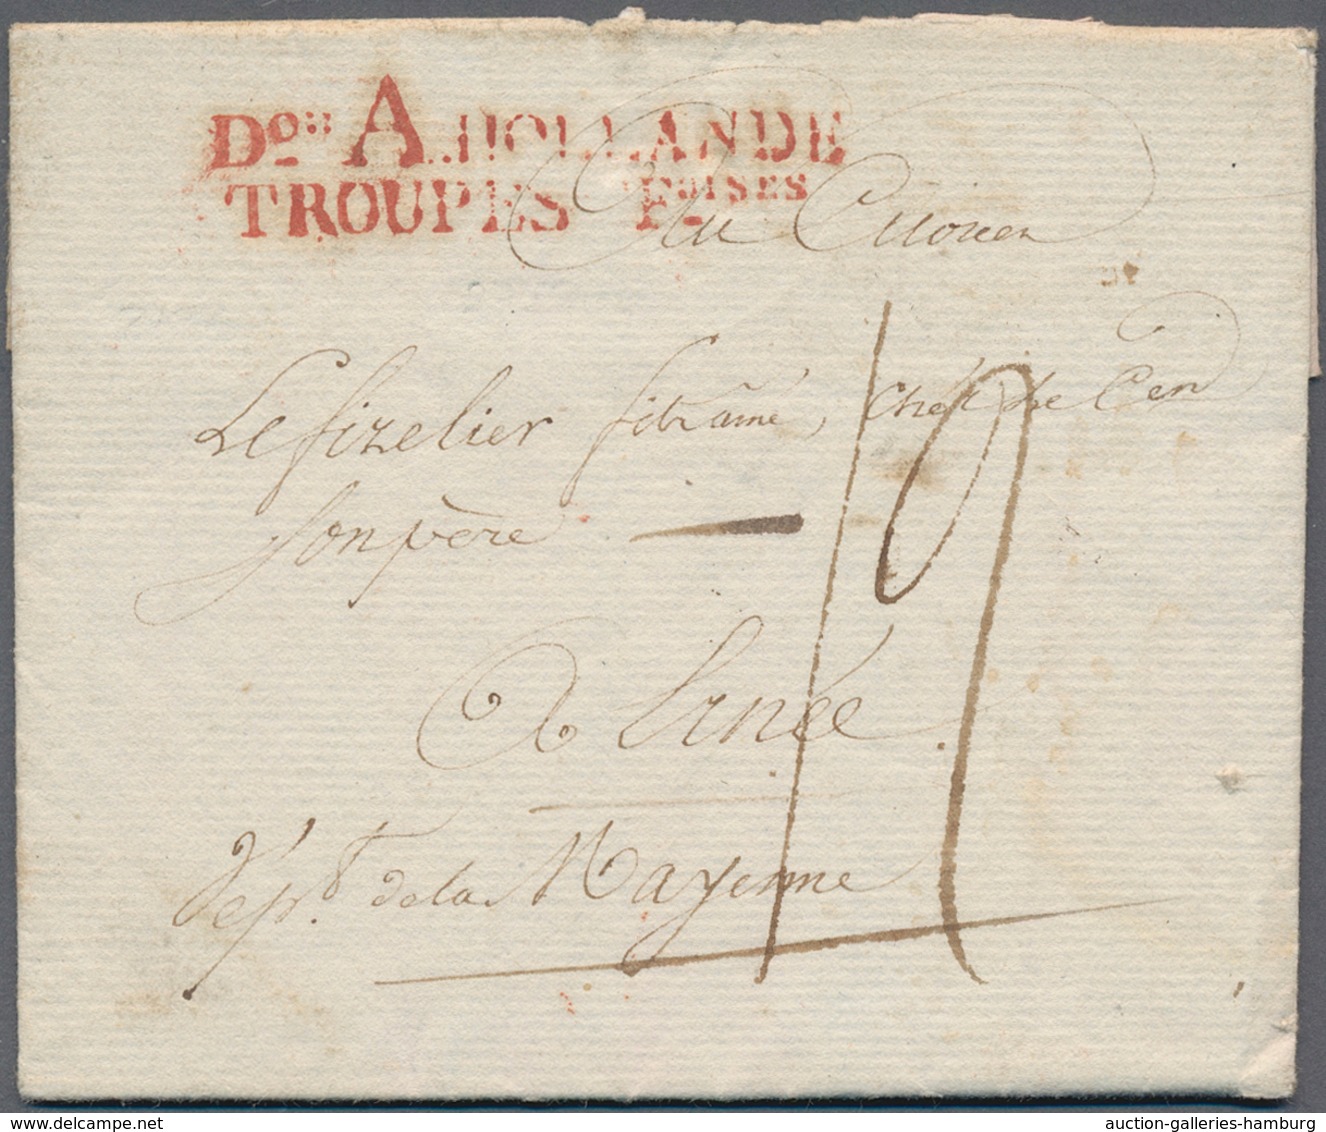 Don A.HOLLANDE
TROUPES Foises
Au Citoien
Lefizelier fils ainé, chez le Cen
son père
A Ernée
Dept. de la Mayenne
19
www.delcampe.net
auction-galleries-hamburg